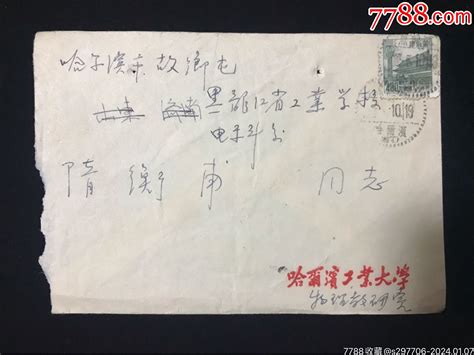 7788.com
哈尔滨市故鄉屯
山東 济南 黑龙江省工業学校
电子科
隋衡甫 同志
10.19
哈爾濱工業大學
物理教研室
7788收藏@s297706-2024.01.07